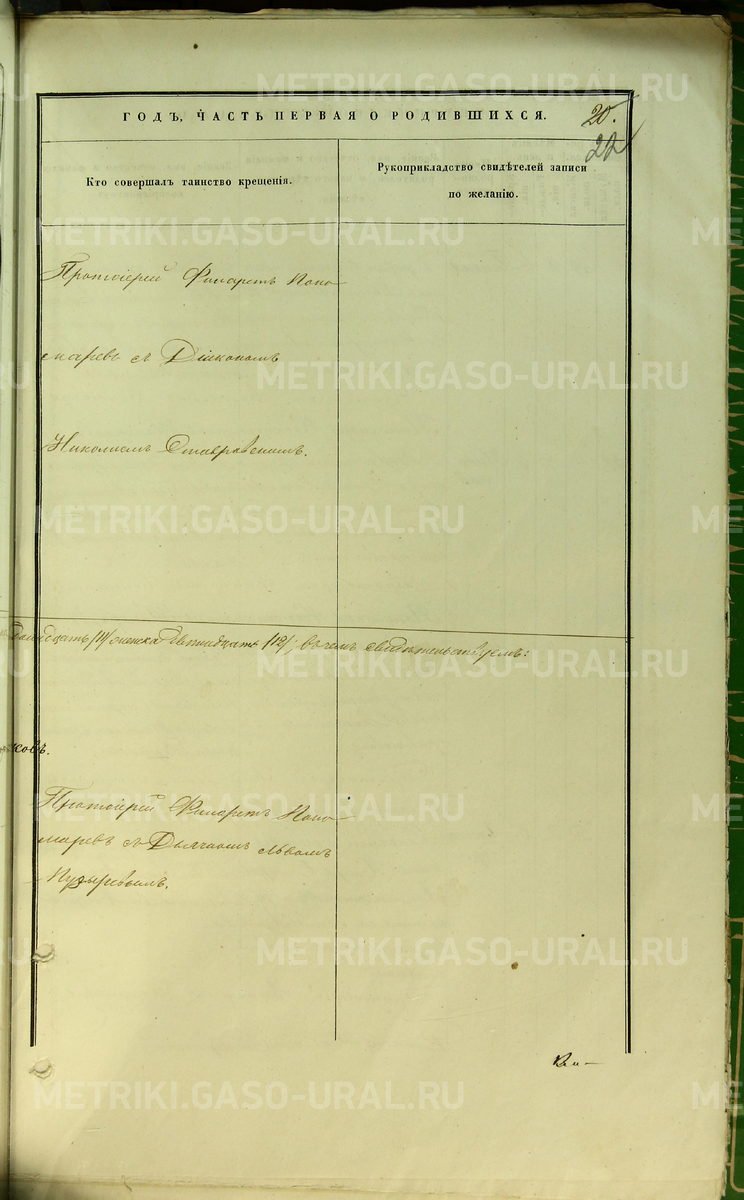 ГОДЪ, ЧАСТЬ ПЕРВАЯ О РОДИВШИХСЯ.
20.
22
Кто совершалъ таинство крещенія.
Рукоприкладство свидѣтелей записи
по желанію.
Протоіерей Филаретъ Поно
маревъ съ Діакономъ
Николаемъ Ставровскимъ.
двѣнадцать /12/; въ чемъ свидѣтельствуемъ:
Протоіерей Филаретъ Поно
маревъ съ Дьячкомъ Львомъ
Пузыревымъ.
METRIKI.GASO-URAL.RU